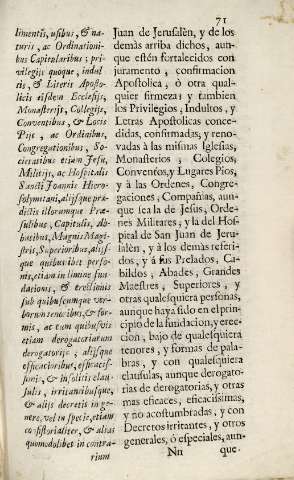 71
limentis, usibus, & na-
turis, ac Ordinationi-
bus Capitularibus; pri-
vilegijs quoque, indul
tis, & Literis Aposto-
licis eisdem Ecclesijs,
Monasterijs, Collegijs,
Conventibus, & Locis
Pijs, ac Ordinibus,
Congregationibus, So-
cietatibus etiam Jesu,
Militijs, ac Hospitalis
Sancti Joannis Hiero-
solymitani, alijsque præ-
dictis illorumque Præ-
sulibus, Capitulis, Ab-
batibus, Magnis Magi-
stris, Superioribus, alijs-
que quibuslibet perso-
nis, etiam in limine fun-
dationis, & erectionis
sub quibuscumque ver-
borum tenoribus, & for-
mis, ac cum quibusvis
etiam derogatoriarum
derogatorijs; alijsque
efficatioribus, efficacis-
simis, & insolitis clau-
sulis, irritantibusque,
& alijs decretis in ge-
nere, vel in specie, etiam
consistorialiter, & aliàs
quomodolibet in contra-
rium
Juan de Jerusalèn, y de los
demàs arriba dichos, aun-
que estén fortalecidos con
juramento, confirmacion
Apostolica, ò otra qual-
quier firmeza; y tambien
los Privilegios, Indultos, y
Letras Apostolicas conce-
didas, confirmadas, y reno-
vadas à las mismas Iglesias,
Monasterios, Colegios,
Conventos, y Lugares Pios,
y à las Ordenes, Congre-
gaciones, Compañias, aun-
que sea la de Jesus, Orde-
nes Militares, y la del Hos-
pital de San Juan de Jeru-
salèn, y à los demàs referi-
dos, y à sus Prelados, Ca-
bildos, Abades, Grandes
Maestres, Superiores, y
otras qualesquiera personas,
aunque haya sido en el prin-
cipio de la fundacion, y erec-
cion, bajo de qualesquiera
tenores, y formas de pala-
bras, y con qualesquiera
clausulas, aunque derogato-
rias de derogatorias, y otras
mas eficaces, eficacissimas,
y no acostumbradas, y con
Decretos irritantes, y otros
generales, ò especiales, aun-
Nn que.